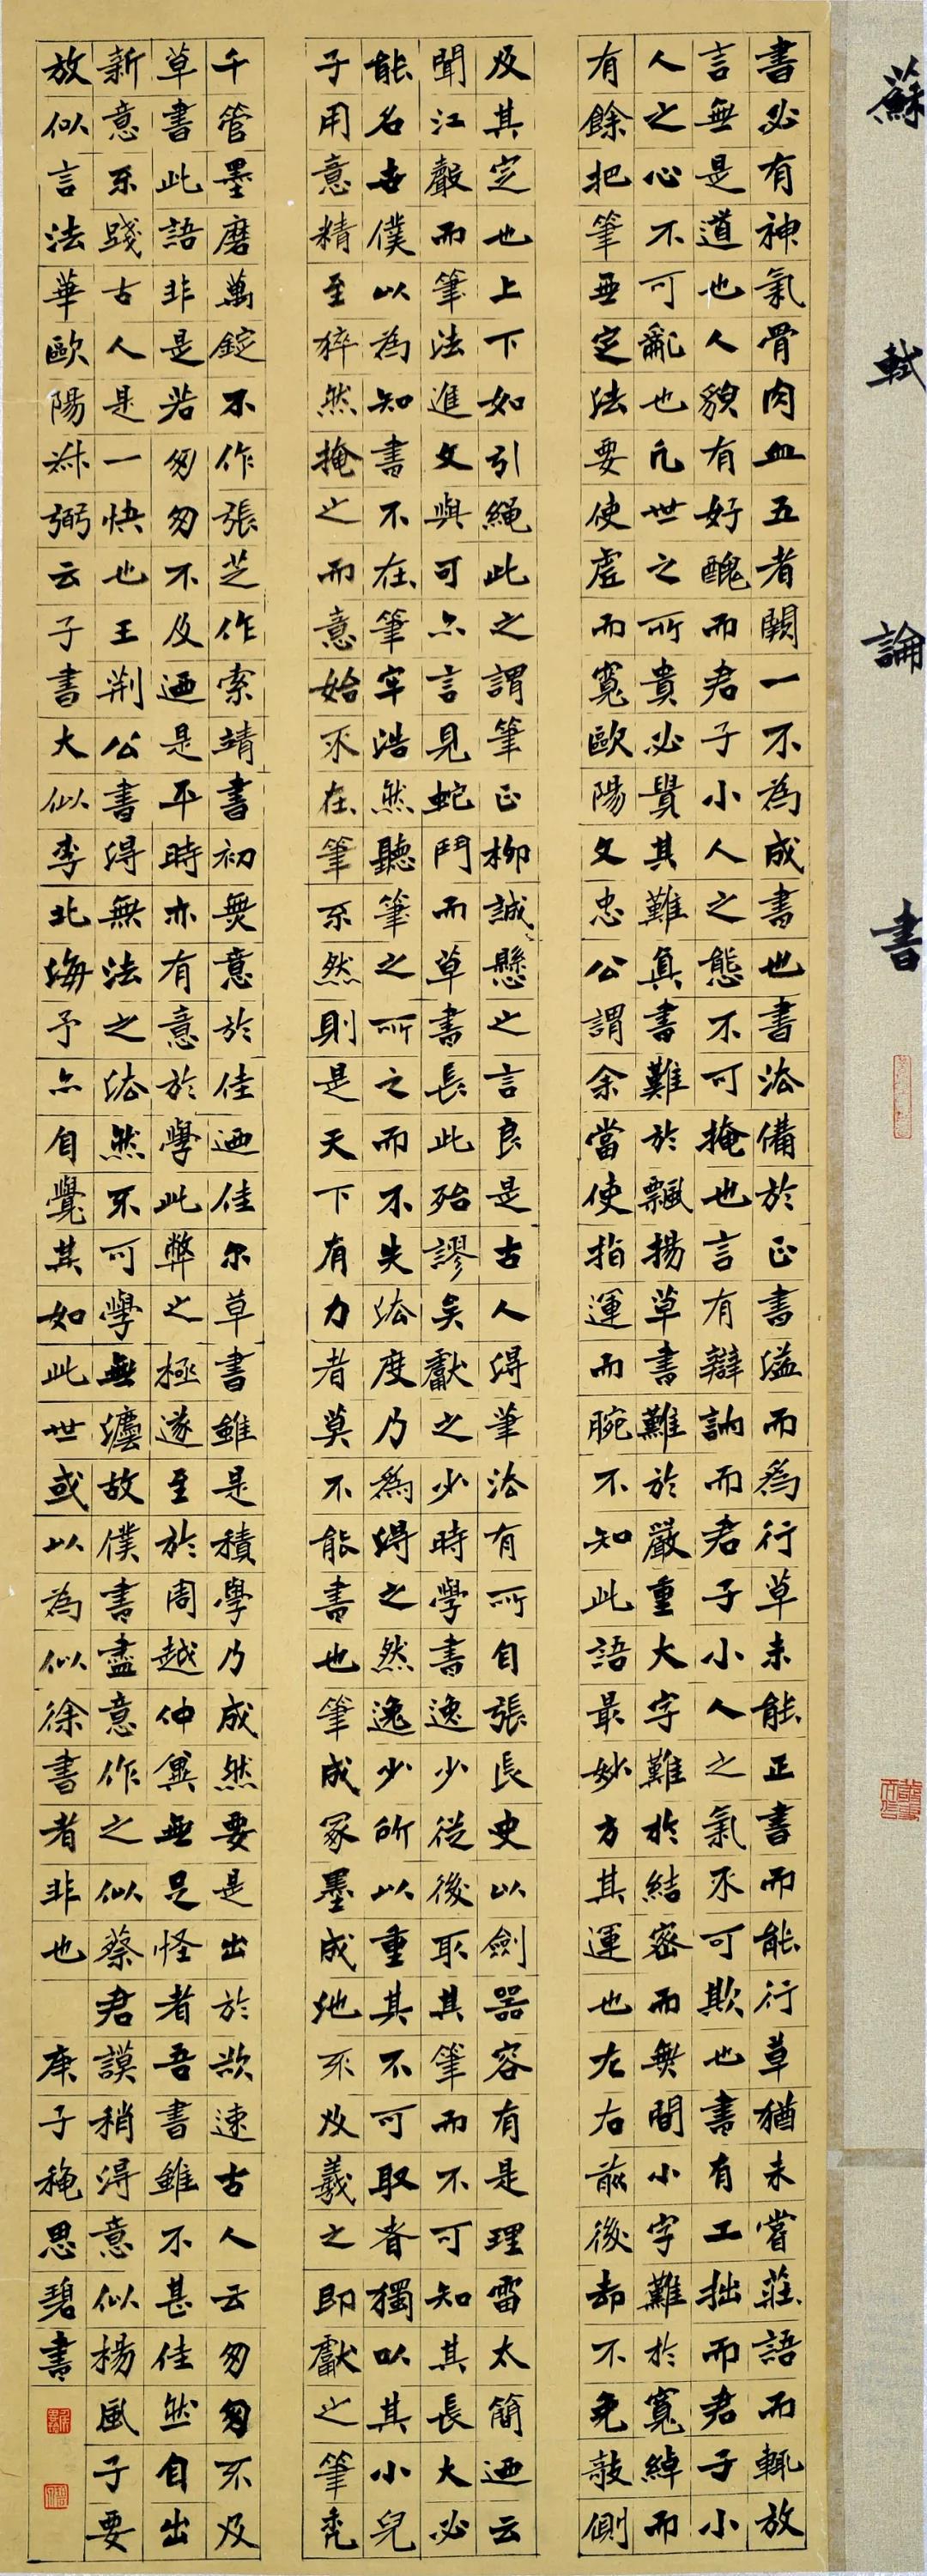 蘇軾論書
書必有神氣骨肉血五者闕一不為成書也書法備於正書溢而為行草未能正書而能行草猶未嘗莊語而輒放
言無是道也人貌有好醜而君子小人之態不可掩也言有辯訥而君子小人之氣不可欺也書有工拙而君子小
人之心不可亂也凡世之所貴必貴其難真書難於飄揚草書難於嚴重大字難於結密而無間小字難於寬綽而
有餘把筆無定法要使虛而寬歐陽文忠公謂余當使指運而腕不知此語最妙方其運也左右前後却不免欹側
及其定也上下如引繩此之謂筆正柳誠懸之言良是古人得筆法有所自張長史以劍器容有是理雷太簡迺云
聞江聲而筆法進文與可亦言見蛇鬥而草書長此殆謬矣獻之少時學書逸少從後取其筆而不可知其長大必
能名世僕以為知書不在筆牢浩然聽筆之所之而不失法度乃為得之然逸少所以重其不可取者獨以其小兒
子用意精至猝然掩之而意始不在筆不然則是天下有力者莫不能書也筆成冢墨成池不及羲之即獻之筆禿
千管墨磨萬錠不作張芝作索靖書初無意於佳迺佳尔草書雖是積學乃成然要是出於欲速古人云匆匆不及
草書此語非是若匆匆不及迺是平時亦有意於學此弊之極遂至於周越仲翼無足怪者吾書雖不甚佳然自出
新意不踐古人是一快也王荊公書得無法之法然不可學無灋故僕書盡意作之似蔡君謨稍得意似楊風子要
放似言法華歐陽叔弼云子書大似李北海予亦自覺其如此世或以為似徐書者非也 庚子穐思碧書